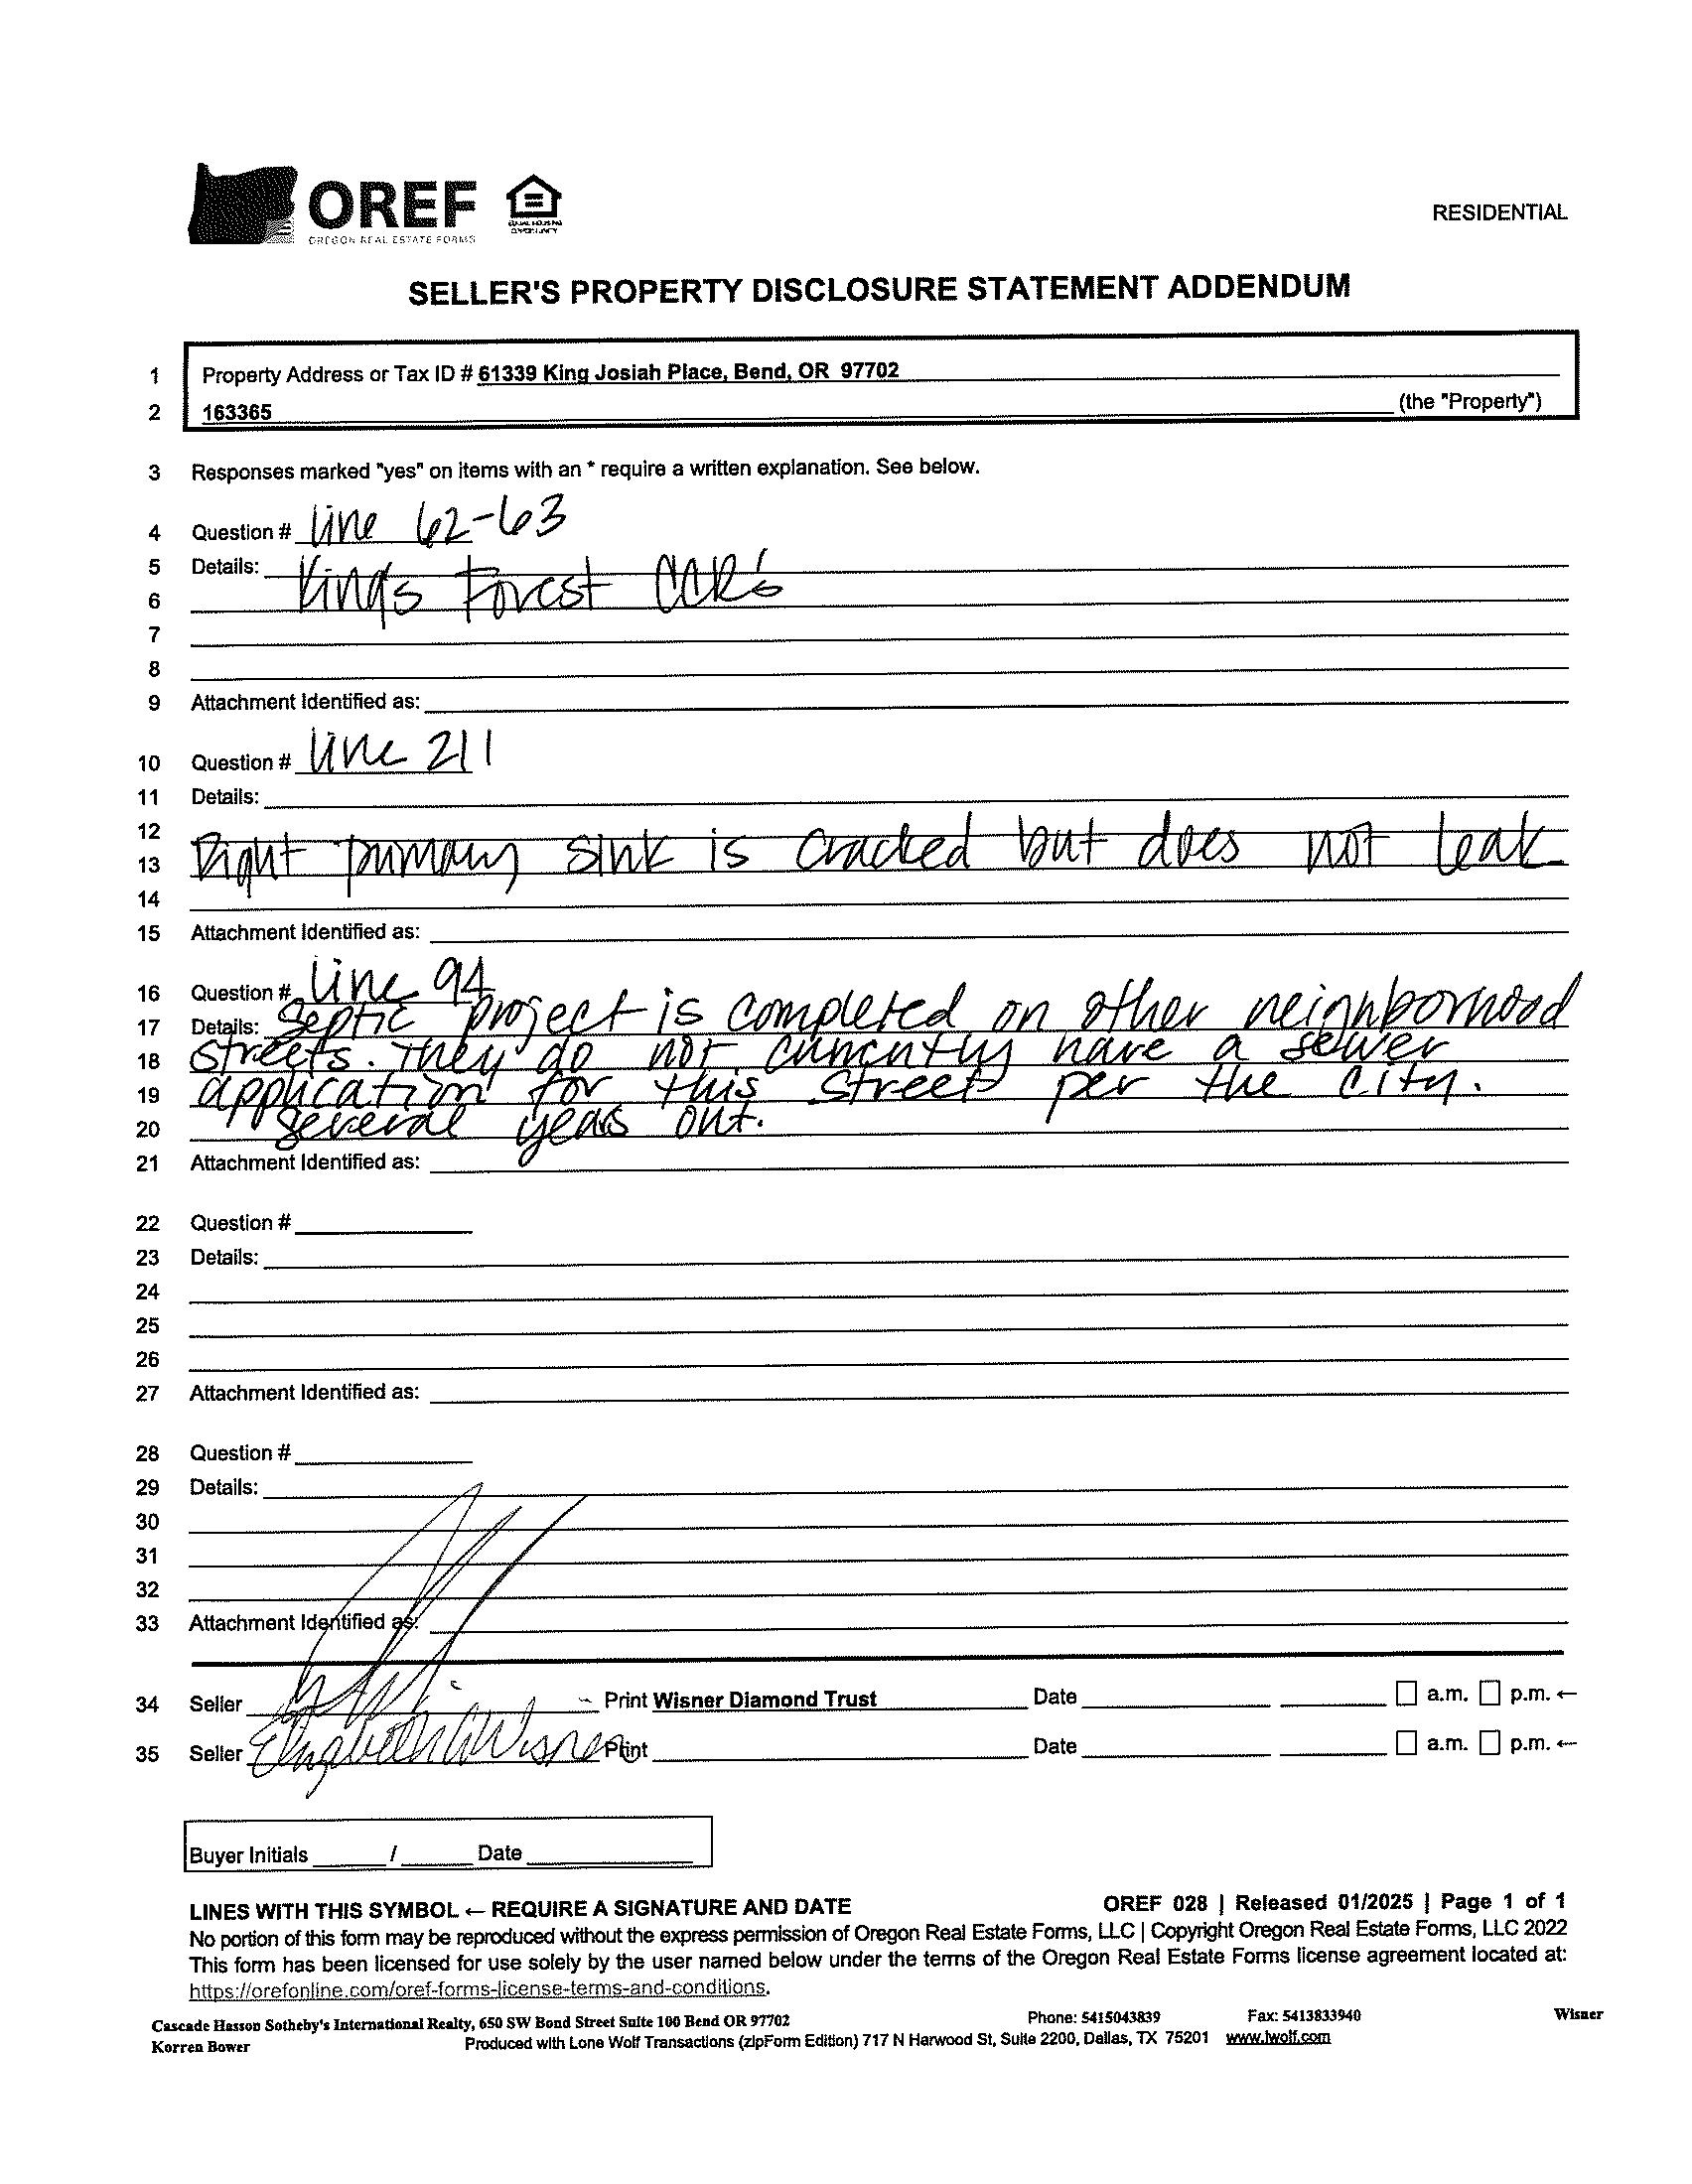 OREF
OREGON REAL ESTATE FORMS
EQUAL HOUSING
OPPORTUNITY
RESIDENTIAL
SELLER'S PROPERTY DISCLOSURE STATEMENT ADDENDUM
1 Property Address or Tax ID # 61339 King Josiah Place, Bend, OR 97702
2 163365 (the "Property")
3 Responses marked "yes" on items with an * require a written explanation. See below.
4 Question # line 62-63
5 Details:
6 Kings Forest CCR's
7
8
9 Attachment Identified as:
10 Question # line 211
11 Details:
12
13 Right primary sink is cracked but does not leak
14
15 Attachment Identified as:
16 Question # line 94
17 Details: Septic project is completed on other neighborhood
18 streets. They do not currently have a sewer
19 application for this street per the city.
20 Several years out.
21 Attachment Identified as:
22 Question #
23 Details:
24
25
26
27 Attachment Identified as:
28 Question #
29 Details:
30
31
32
33 Attachment Identified as:
34 Seller Print Wisner Diamond Trust Date a.m. p.m. ←
35 Seller Elizabeth A Wisner Print Date a.m. p.m. ←
Buyer Initials / Date
LINES WITH THIS SYMBOL ← REQUIRE A SIGNATURE AND DATE OREF 028 | Released 01/2025 | Page 1 of 1
No portion of this form may be reproduced without the express permission of Oregon Real Estate Forms, LLC | Copyright Oregon Real Estate Forms, LLC 2022
This form has been licensed for use solely by the user named below under the terms of the Oregon Real Estate Forms license agreement located at:
https://orefonline.com/oref-forms-license-terms-and-conditions.
Cascade Hasson Sotheby's International Realty, 650 SW Bond Street Suite 100 Bend OR 97702 Phone: 5415043839 Fax: 5413833940 Wisner
Korren Bower Produced with Lone Wolf Transactions (zipForm Edition) 717 N Harwood St, Suite 2200, Dallas, TX 75201 www.lwolf.com